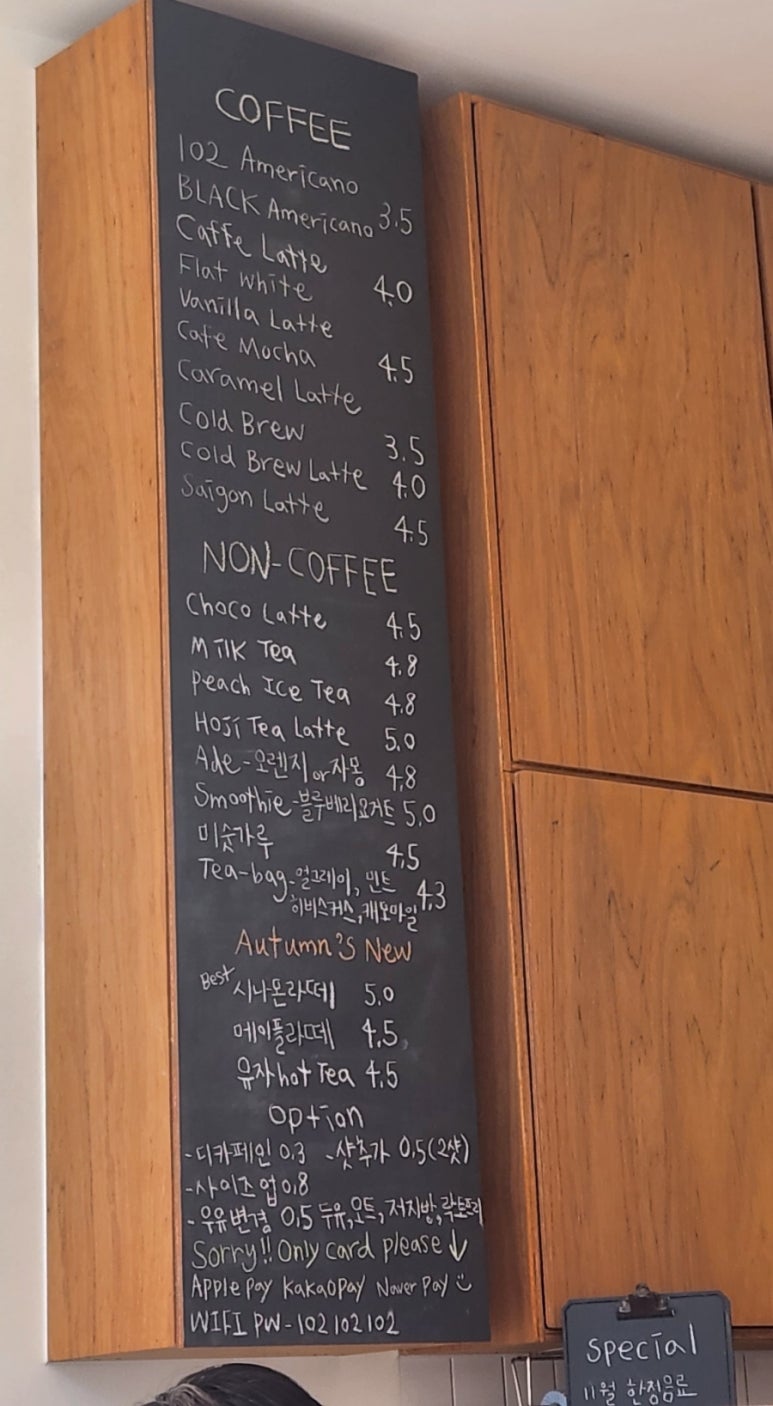 COFFEE
102 Americano
BLACK Americano 3.5
Caffe Latte
Flat white 4.0
Vanilla Latte
Cafe Mocha 4.5
Caramel Latte
Cold Brew 3.5
Cold Brew Latte 4.0
Saigon Latte 4.5
NON-COFFEE
Choco Latte 4.5
Milk Tea 4.8
Peach Ice Tea 4.8
Hoji Tea Latte 5.0
Ade-오렌지 or 자몽 4.8
Smoothie-블루베리요거트 5.0
미숫가루 4.5
Tea-bag-얼그레이, 민트 4.3
히비스커스, 캐모마일
Autumn's New
Best 시나몬라떼 5.0
메이플라떼 4.5
유자hot Tea 4.5
Option
-디카페인 0.3 -샷추가 0.5(2샷)
-사이즈업 0.8
-우유변경 0.5 두유, 오트, 저지방, 락토프리
Sorry!! Only card please↓
Apple pay KakaoPay Naver Pay
WIFI PW-102102102
special
11월 한정음료